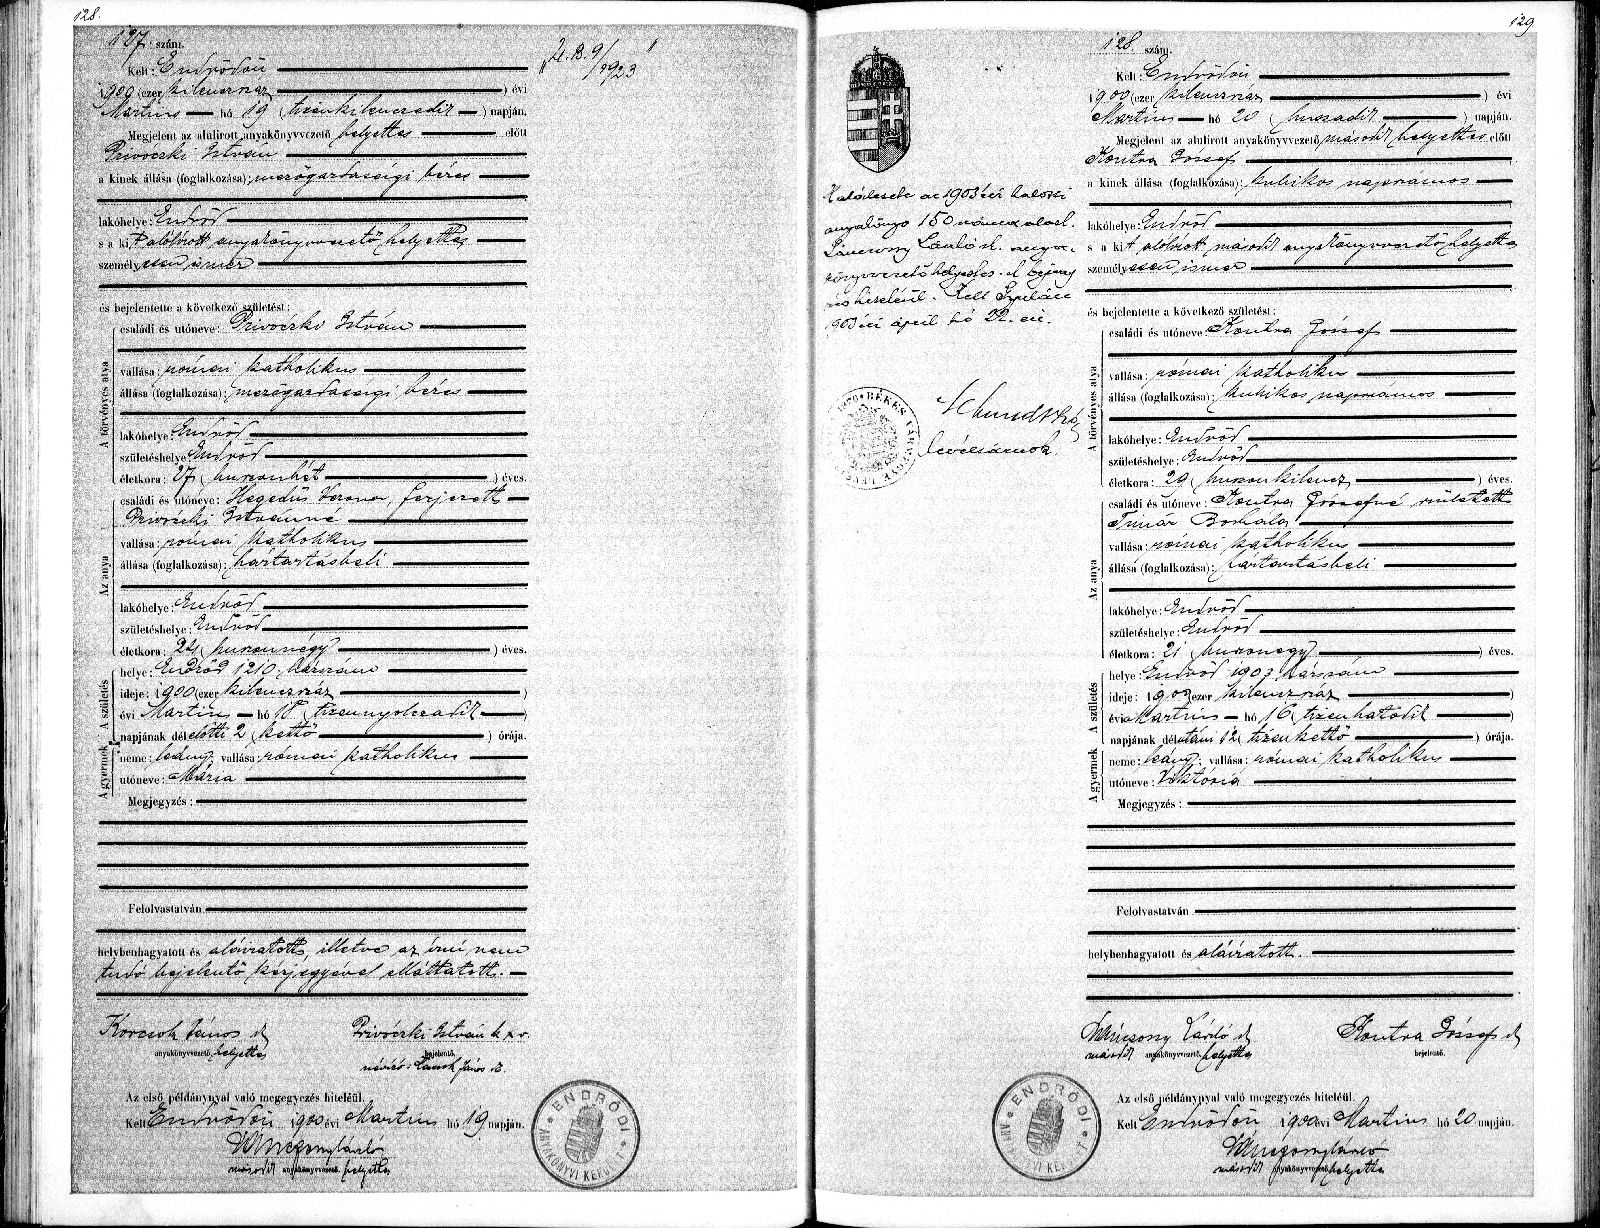 128.
127. szám.
Kelt: Endrődön
1900 (ezer kilenczszáz) évi
Martius hó 19 (tizenkilenczedik) napján.
Megjelent az alulirott anyakönyvvezető helyettes előtt
Privóczki István
a kinek állása (foglalkozása): mezőgazdasági béres
lakóhelye: Endrőd
s a kit alólirott anyakönyvvezető helyettes
személyesen ismer
és bejelentette a következő születést:
A törvényes atya
családi és utóneve: Privóczki István
vallása: római katholikus
állása (foglalkozása): mezőgazdasági béres
lakóhelye: Endrőd
születéshelye: Endrőd
életkora: 27 (huszonhét) éves.
Az anya
családi és utóneve: Hegedűs Verona, férjezett
Privóczki Istvánné
vallása: római katholikus
állása (foglalkozása): háztartásbeli
lakóhelye: Endrőd
születéshelye: Endrőd
életkora: 24 (huszonnégy) éves.
A születés
helye: Endrőd 1210 házszám
ideje: 1900 (ezer kilenczszáz)
évi Martius hó 18 (tizennyolczadik)
napjának délelőtti 2 (kettő) órája.
A gyermek
neme: leány; vallása: római katholikus
utóneve: Mária
Megjegyzés:
Felolvastatván
helybenhagyatott és aláiratott, illetve az írni nem
tudó bejelentő kézjegyével elláttatott.
Korcsok János
anyakönyvvezető helyettes
Privóczki István k x v.
bejelentő.
névíró: János
Az első példánynyal való megegyezés hiteléül.
Kelt Endrődön 1900 évi Martius hó 19 napján.
második anyakönyvvezető helyettes
ENDRŐDI ANYAKÖNYVI KERÜLET
129
128. szám.
Kelt: Endrődön
1900 (ezer kilenczszáz) évi
Martius hó 20 (huszadik) napján.
Megjelent az alulirott anyakönyvvezető második helyettes előtt
Kontra József
a kinek állása (foglalkozása): kubikos napszámos
lakóhelye: Endrőd
s a kit alólirott második anyakönyvvezető helyettes
személyesen ismer
és bejelentette a következő születést:
A törvényes atya
családi és utóneve: Kontra József
vallása: római katholikus
állása (foglalkozása): kubikos napszámos
lakóhelye: Endrőd
születéshelye: Endrőd
életkora: 29 (huszonkilencz) éves.
Az anya
családi és utóneve: Kontra Józsefné született
Timár Borbála
vallása: római katholikus
állása (foglalkozása): háztartásbeli
lakóhelye: Endrőd
születéshelye: Endrőd
életkora: 21 (huszonegy) éves.
A születés
helye: Endrőd 1903 házszám
ideje: 1900 (ezer kilenczszáz)
évi Martius hó 16 (tizenhatodik)
napjának délután 12 (tizenkettő) órája.
A gyermek
neme: leány; vallása: római katholikus
utóneve: Viktória
Megjegyzés:
Felolvastatván
helybenhagyatott és aláiratott.
László
második anyakönyvvezető helyettes
Kontra József
bejelentő.
Az első példánynyal való megegyezés hiteléül.
Kelt Endrődön 1900 évi Martius hó 20 napján.
második anyakönyvvezető helyettes
ENDRŐDI ANYAKÖNYVI KERÜLET
Halálesete az 1903 évi halotti
anyakönyv 150 száma alatt.
László h. anya-
könyvvezető helyettes. A bejegy
zés hiteléül. Kelt Gyulán
1903 évi április hó 22-én.
levéltárnok.